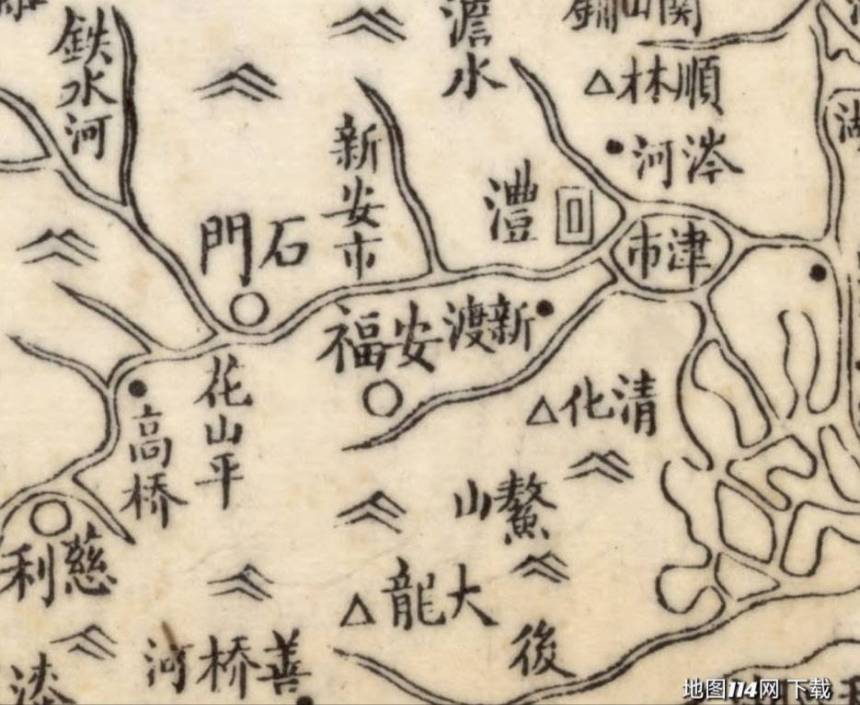 鉄水河
澹水
關山
順林
涔河
新安市
澧
石門
津市
新渡
安福
花山平
清化
高桥
鰲山
慈利
大龍
後
善桥河
地图114网 下载